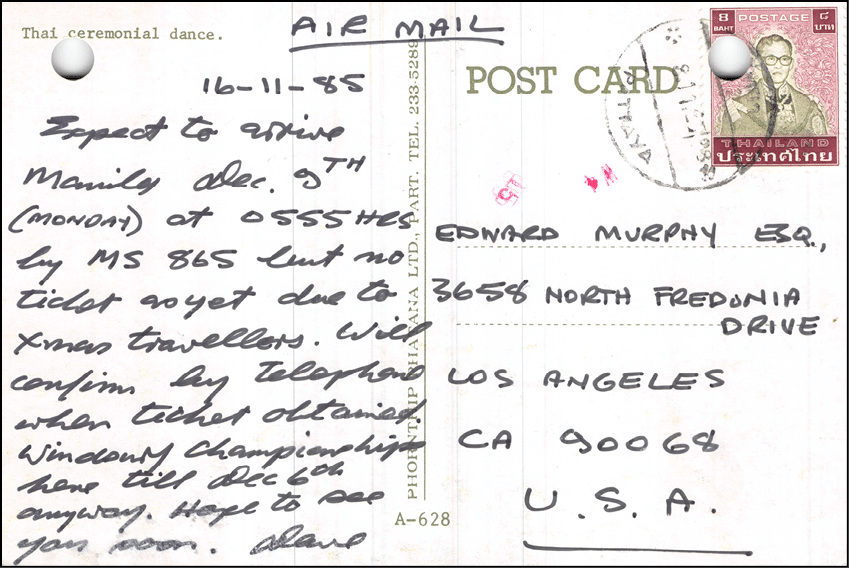 Thai ceremonial dance.
AIR MAIL
16-11-85
Expect to arrive
Manila Dec. 9TH
(MONDAY) at 0555 HRS
by MS 865 but no
ticket as yet due to
Xmas travellers. Will
confirm by Telephone
when ticket obtained.
Windsurf Championships
here till Dec 6th
anyway. Hope to see
you soon. Dave
PHORNTHIP PHATANA LTD., PART. TEL. 233-5289
A-628
POST CARD
8 POSTAGE ๘
BAHT บาท
THAILAND
ประเทศไทย
PATTAYA
EDWARD MURPHY ESQ.,
3658 NORTH FREDONIA
DRIVE
LOS ANGELES
CA 90068
U.S.A.